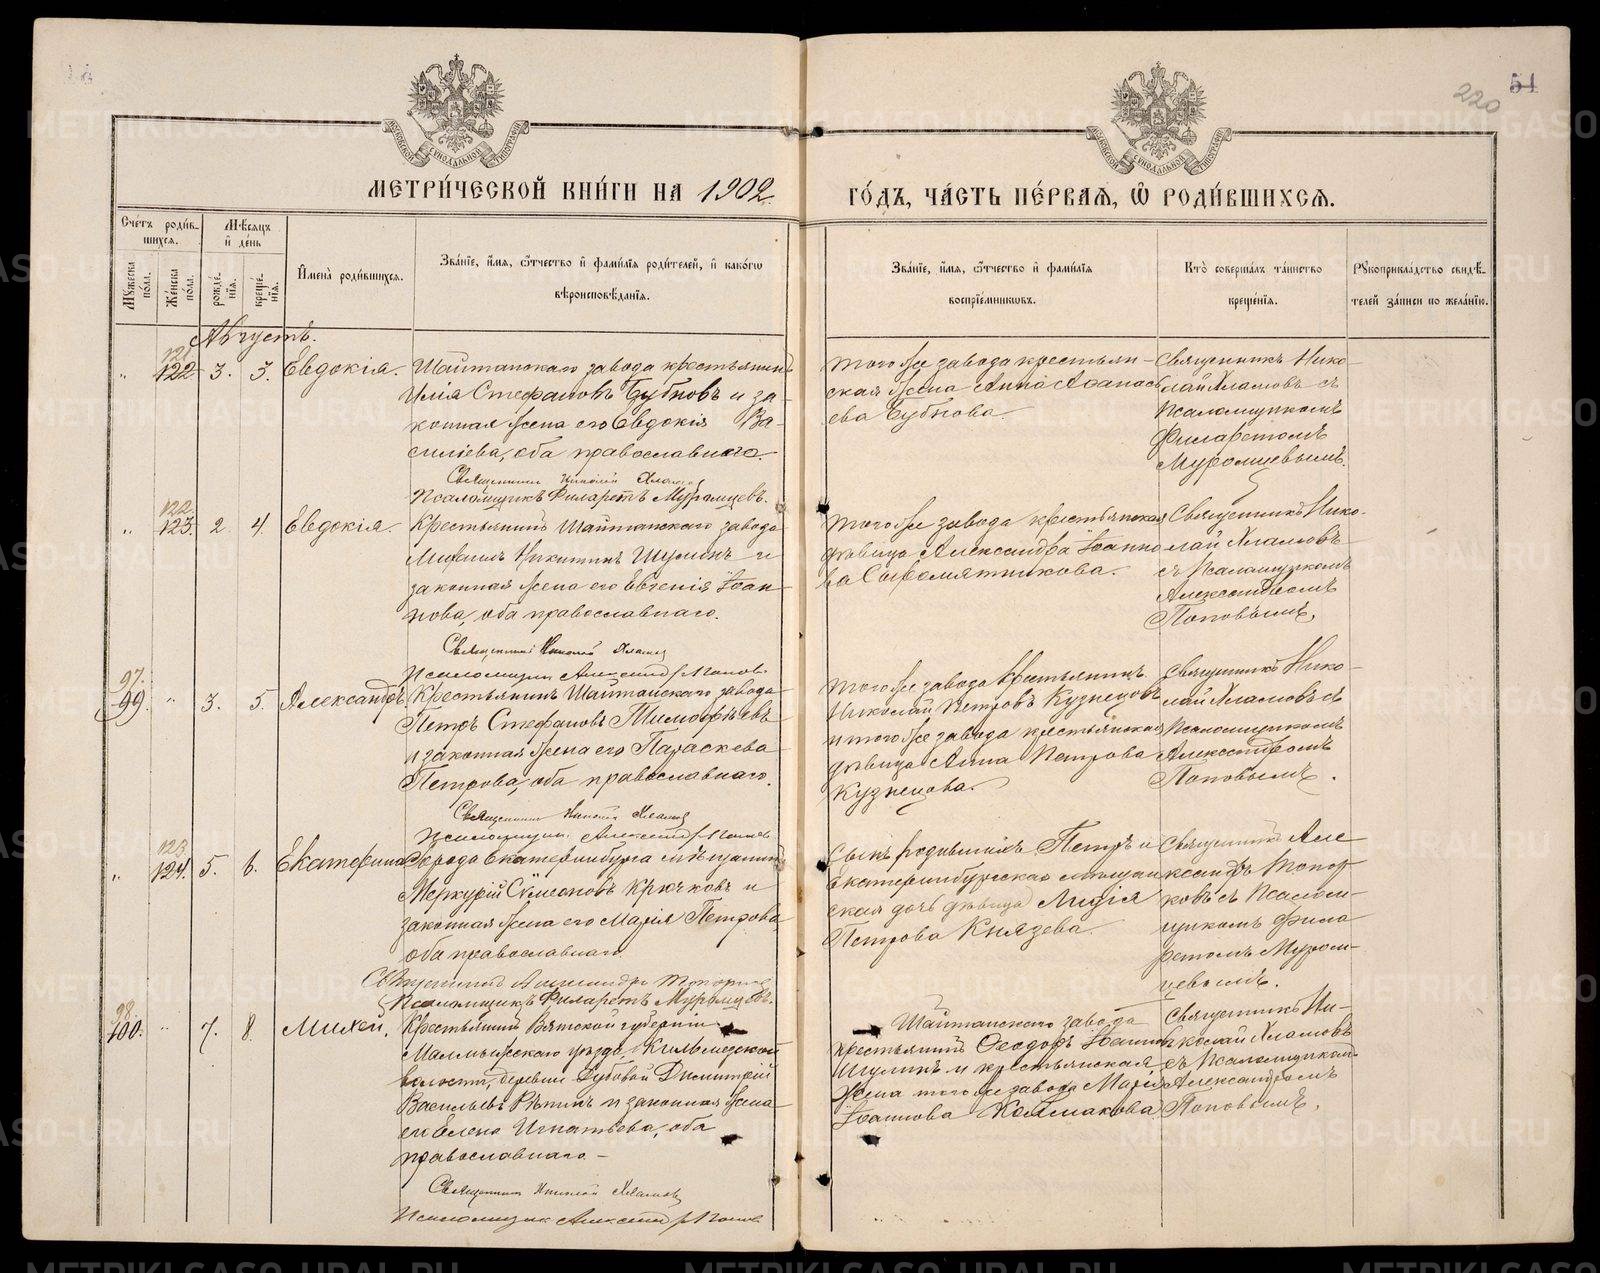 220
54
МОСКОВСКОЙ СѴНОДАЛЬНОЙ ТИПОГРАФІИ
МОСКОВСКОЙ СѴНОДАЛЬНОЙ ТИПОГРАФІИ
МЕТРИ́ЧЕСКОЙ КНИ́ГИ НА 1902
ГО́ДЪ, ЧА́СТЬ ПЕ́РВАѦ, Ѽ РОДИ́ВШИХСѦ.
Сче́тъ роди́в-
шихсѧ.
Мꙋ́жеска по́ла.
Же́нска по́ла.
Мѣ́сѧцъ
и҆ де́нь
рожде́-
нїѧ.
креще́-
нїѧ.
И҆мена̀ роди́вшихсѧ.
Зва́нїе, и҆́мѧ, ѻ҆́тчество и҆ фами́лїѧ роди́телей, и҆ како́гѡ
вѣроисповѣ́данїѧ.
Зва́нїе, и҆́мѧ, ѻ҆́тчество и҆ фами́лїѧ
воспрїе́мникѡвъ.
Кто̀ соверша́лъ та́инство
креще́нїѧ.
Рꙋкоприкла́дство свидѣ́-
телей за́писи по жела́нїю.
Августъ.
121
122 3. 3. Евдокія.
Шайтанскаго завода крестьянинъ
Илія Стефановъ Бубновъ и за-
конная жена его Евдокія Ва-
силіева, оба православнаго.
Священникъ Николай Хламовъ
Псаломщикъ Филаретъ Муромцевъ.
того же завода крестьян-
ская жена Анна Аѳанась
ева Бубнова.
Священникъ Нико-
лай Хламовъ съ
Псаломщикомъ
Филаретомъ
Муромцевымъ.
122
123. 2 4. Евдокія.
Крестьянинъ Шайтанскаго завода
Михаилъ Никитинъ Шулинъ и
законная жена его Евгенія Іоан-
нова, оба православнаго.
Священникъ Николай Хламовъ
Псаломщикъ Александръ Поповъ
того же завода крестьянская
дѣвица Александра Іоанно
ва Сыромятникова.
Священникъ Нико-
лай Хламовъ
съ Псаломщикомъ
Александромъ
Поповымъ.
97.
99. 3. 5. Александръ
Крестьянинъ Шайтанскаго завода
Петръ Стефановъ Тимофѣевъ
и законная жена его Параскева
Петрова, оба православнаго.
Священникъ Николай Хламовъ
Псаломщикъ Александръ Поповъ
того же завода крестьянинъ
Николай Петровъ Кузнецовъ
и того же завода крестьянская
дѣвица Анна Петрова
Кузнецова.
Священникъ Нико-
лай Хламовъ съ
Псаломщикомъ
Александромъ
Поповымъ.
123
124. 5. 6. Екатерина
Города Екатеринбурга мѣщанинъ
Меркурій Сѵмеоновъ Крючковъ и
законная жена его Марія Петрова
оба православнаго.
Священникъ Александръ Топорковъ
Псаломщикъ Филаретъ Муромцевъ.
Сынъ родившихъ Петръ и
Екатеринбургская мѣщан
ская дочь дѣвица Лидія
Петрова Князева.
Священникъ Але
ксандръ Топор
ковъ съ Псалом-
щикомъ Фила
ретомъ Муром-
цевымъ.
98.
100. 7. 8.
Крестьянинъ Вятской губерніи
Малмыжскаго уѣзда, Кильмезской
волости, деревни Дубовой Димитрій
Васильевъ Рѣпинъ и законная жена
его Елена Игнатьева, оба
православнаго.
Священникъ Николай Хламовъ
Псаломщикъ Александръ Поповъ
Шайтанскаго завода
крестьянинъ Ѳеодоръ Іоанновъ
Шулинъ и крестьянская
жена того же завода Марія
Іоаннова Колмакова.
Священникъ Ни-
колай Хламовъ
съ Псаломщикомъ
Александромъ
Поповымъ.